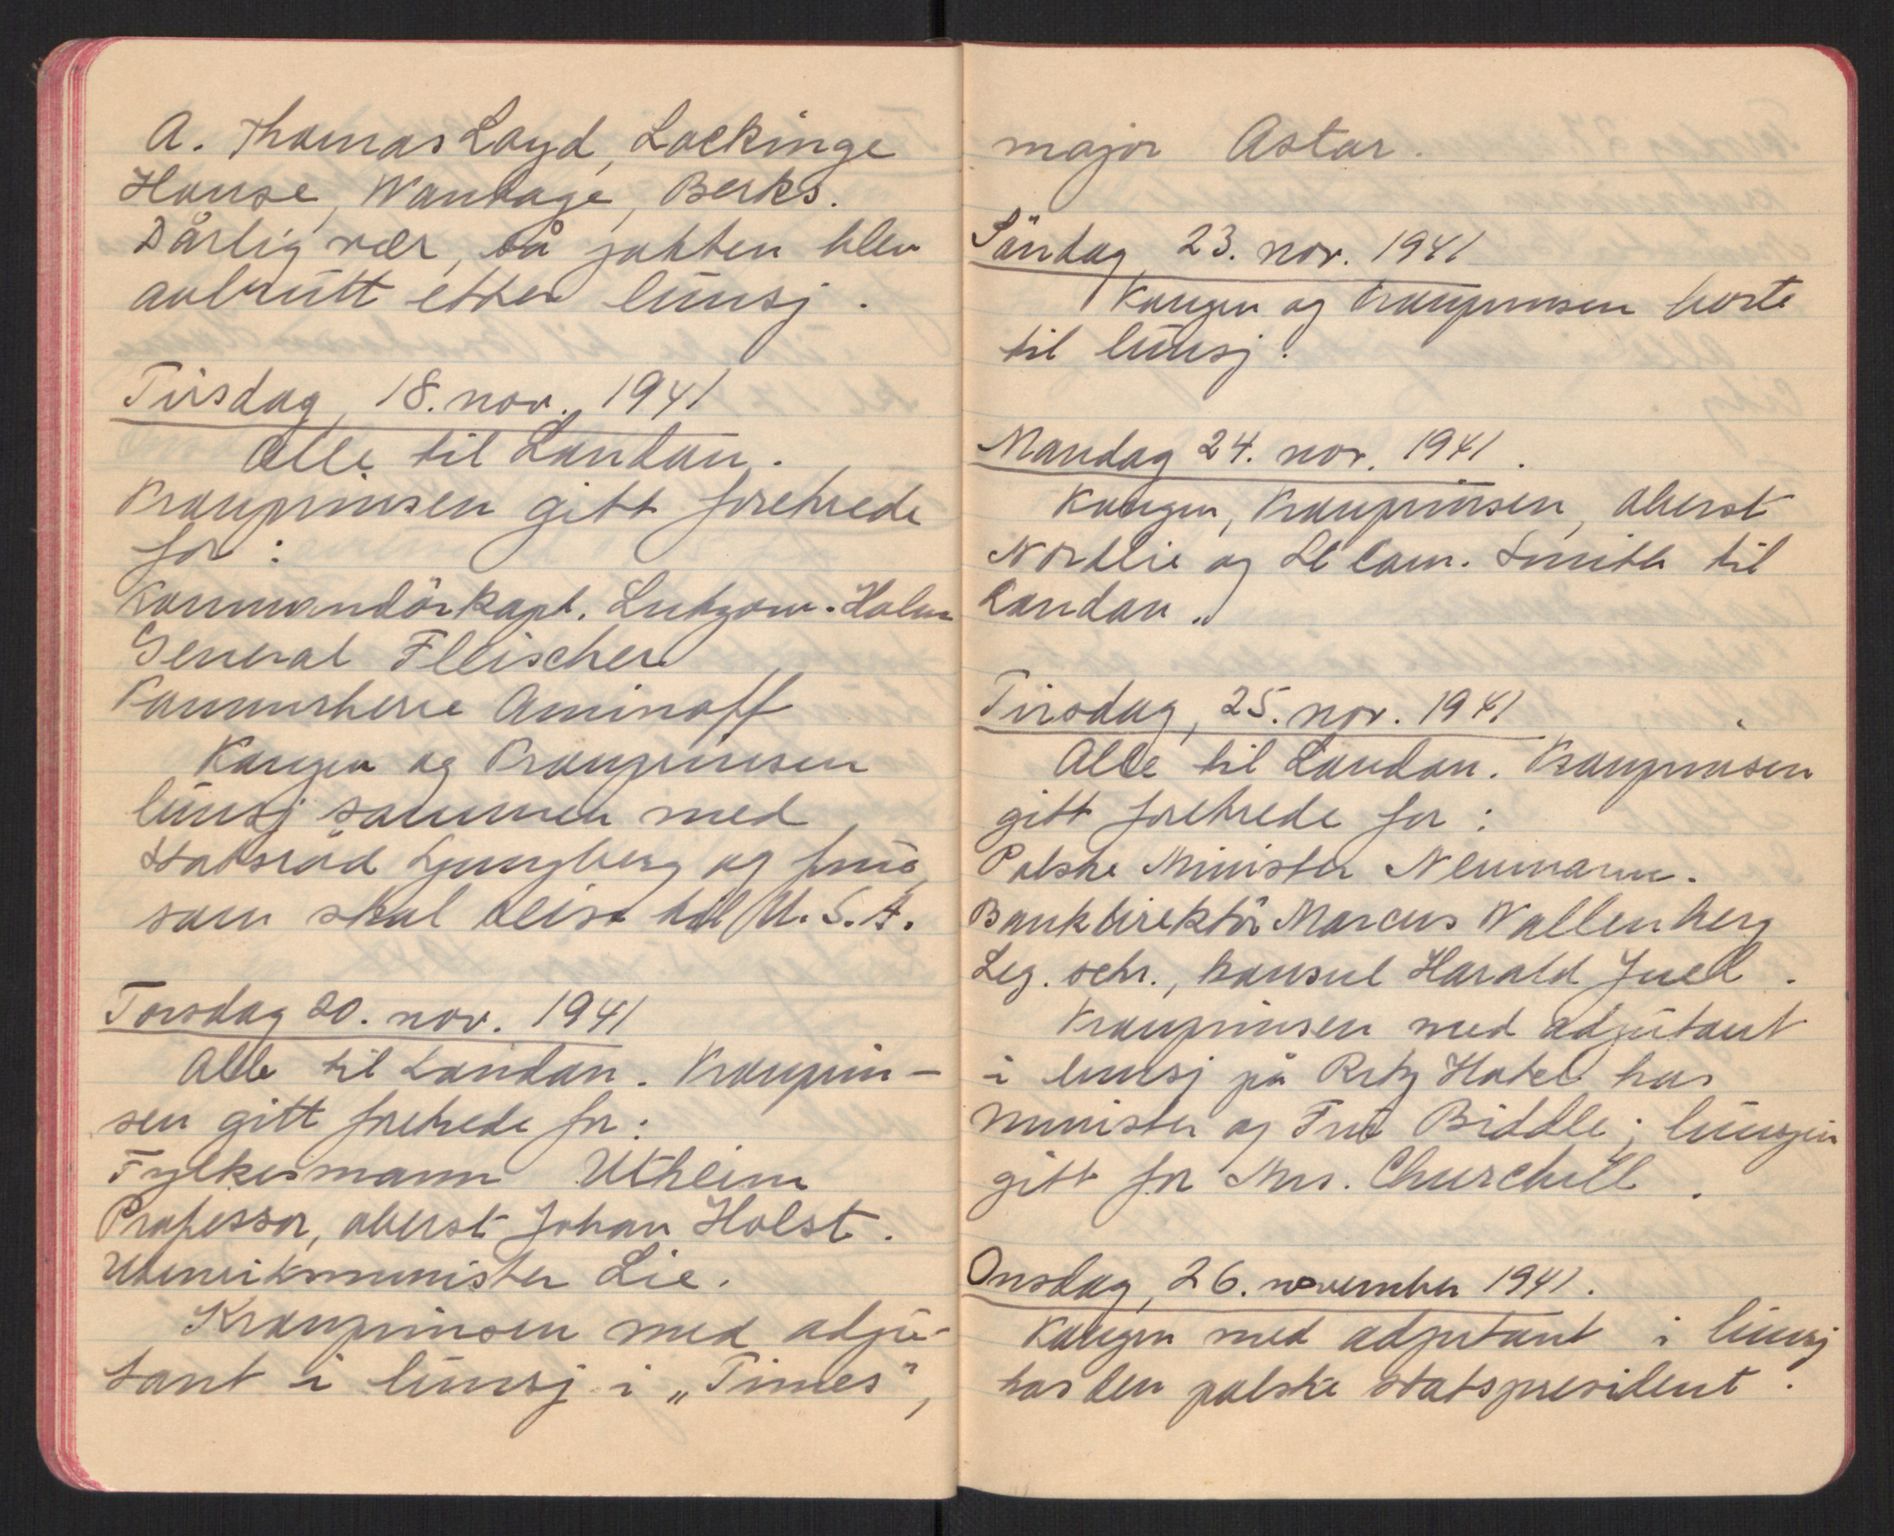 A. Thomas Loyd, Lockinge
House, Wantage, Berks.
Dårlig vær, så jakten blev
avbrutt etter lunsj.
Tirsdag, 18. nov. 1941
Alle til London.
Kronprinsen gitt foretrede
for :
Kommandörkapt. Lutzow-Holm
General Fleischer
Kammerherre Aminoff
Kongen og Kronprinsen
lunsj sammen med
Statsråd Ljungberg og frue,
som skal reise til U.S.A.
Torsdag 20. nov. 1941
Alle til London. Kronprin-
sen gitt foretrede for:
Fylkesmann Utheim
Professor, oberst Johan Holst.
Utenriksminister Lie.
Kronprinsen med adju-
tant i lunsj i „Times”,
major Astor.
Söndag 23. nov. 1941
Kongen og Kronprinsen borte
til lunsj.
Mandag 24. nov. 1941.
Kongen, Kronprinsen, oberst
Nordlie og Lt Com. Smith til
London.
Tirsdag, 25. nov. 1941
Alle til London. Kronprinsen
gitt foretrede for :
Polske Minister Neumann.
Bankdirektör Marcus Wallenberg
Leg. sekr., konsul Harald Juell.
Kronprinsen med adjutant
i lunsj på Ritz Hotel hos
minister og Fru Biddle; lunsjen
gitt for Mrs. Churchill.
Onsdag, 26. november 1941.
Kongen med adjutant i lunsj
hos den polske statspresident.